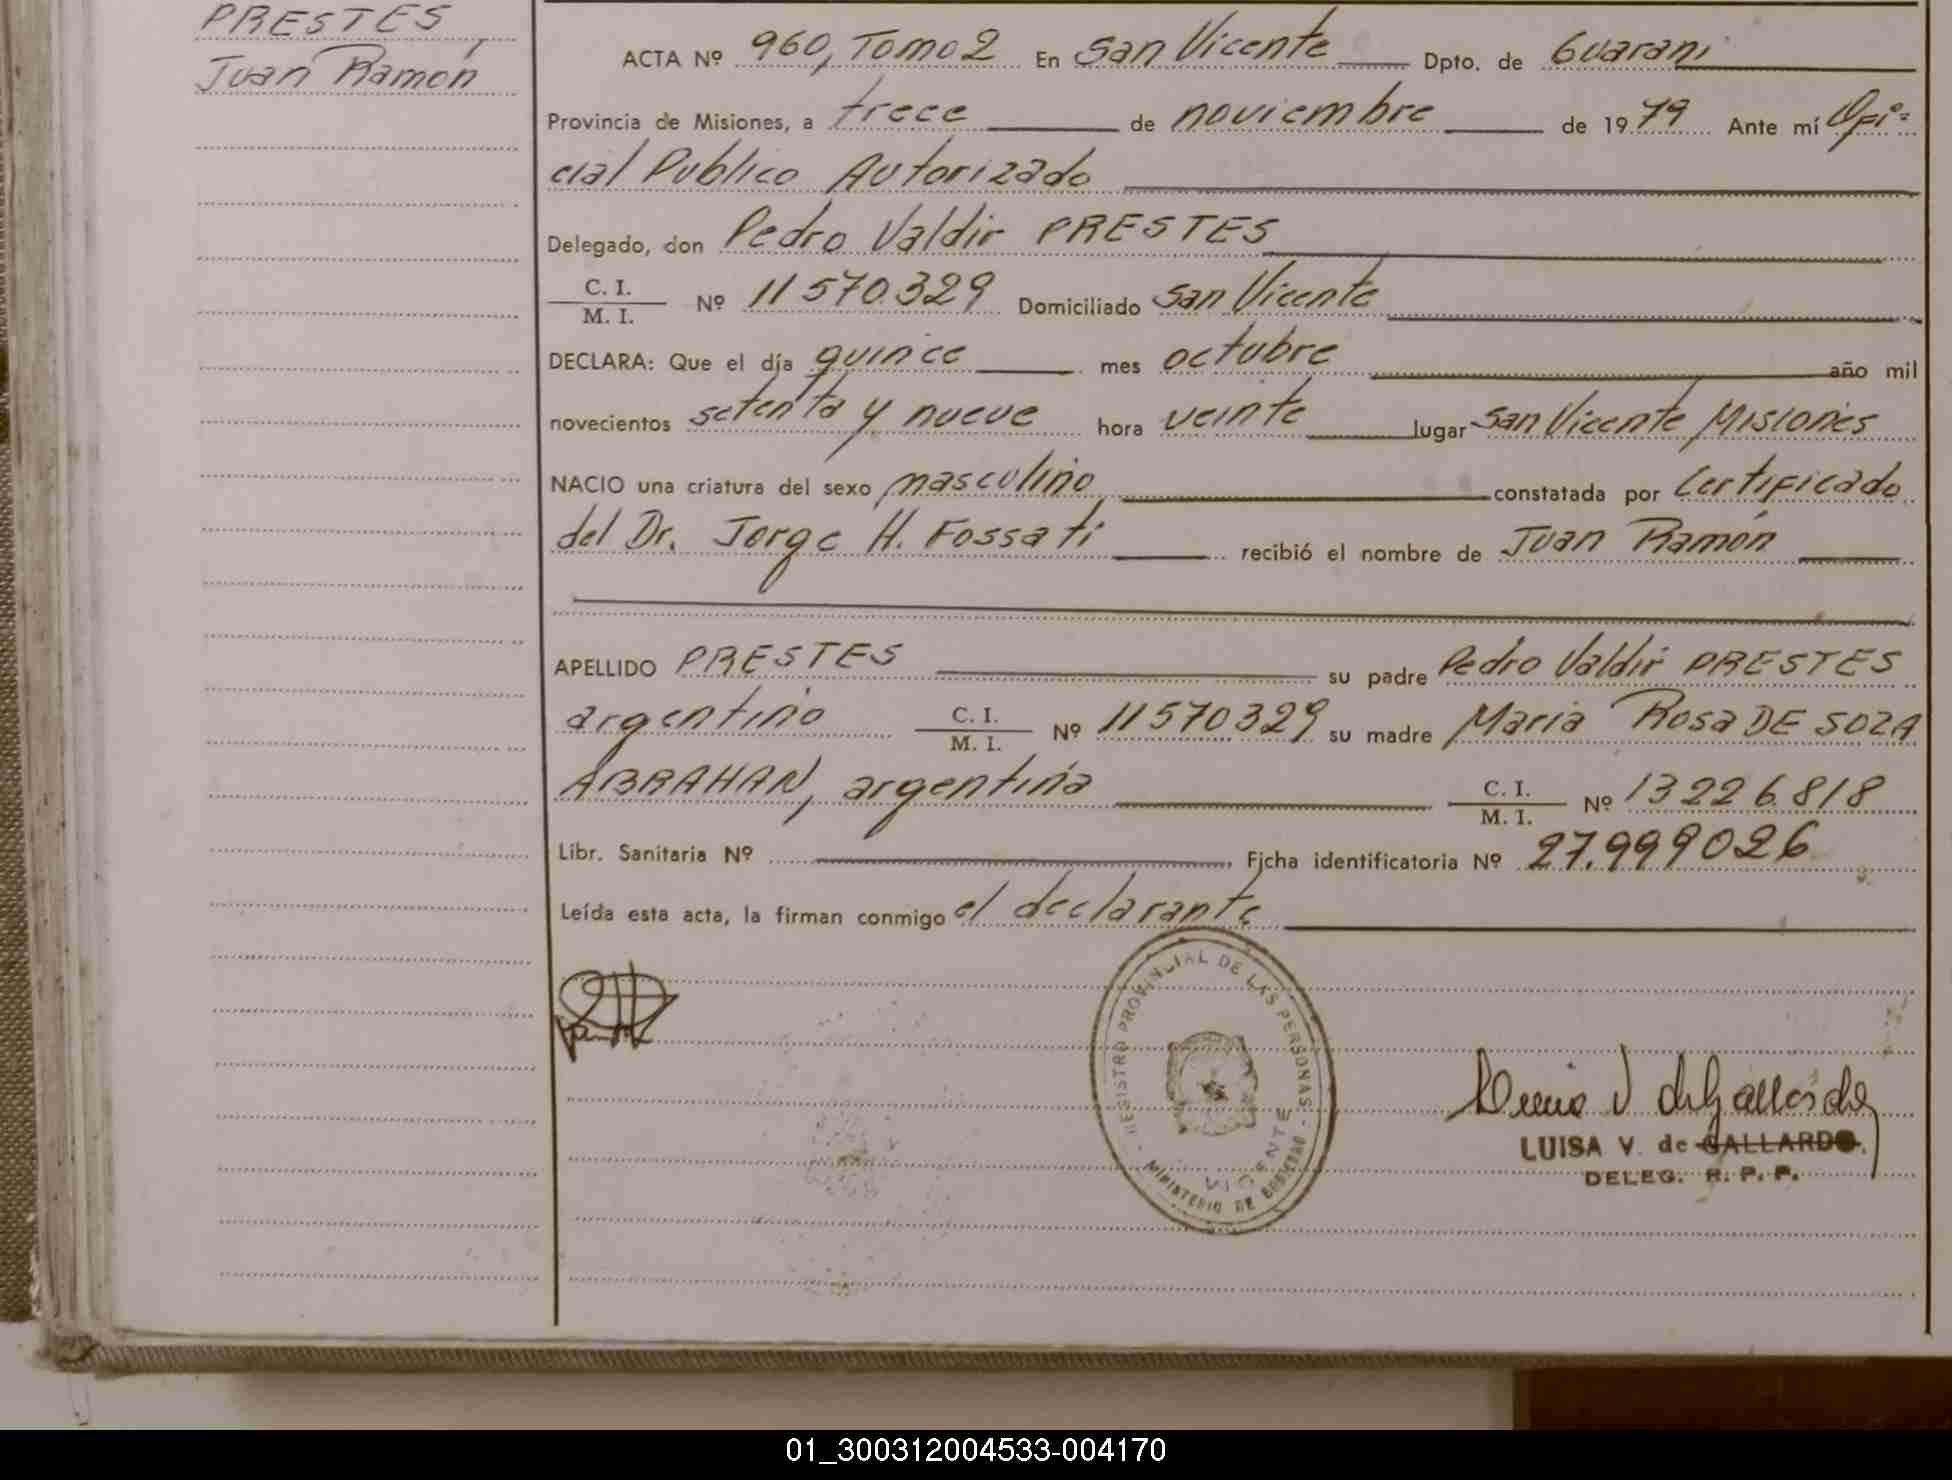 PRESTES,
Juan Ramón
ACTA Nº 960, Tomo 2 En San Vicente Dpto. de Guarani
Provincia de Misiones, a trece de noviembre de 1979 Ante mí Ofi-
cial Publico Autorizado
Delegado, don Pedro Valdir PRESTES
C. I.
M. I. Nº 11570.329 Domiciliado San Vicente
DECLARA: Que el día quince mes octubre año mil
novecientos setenta y nueve hora veinte lugar San Vicente Misiones
NACIO una criatura del sexo masculino constatada por Certificado
del Dr. Jorge H. Fossati recibió el nombre de Juan Ramón
APELLIDO PRESTES su padre Pedro Valdir PRESTES
argentino C. I.
M. I. Nº 11570329 su madre Maria Rosa DE SOZA
ABRAHAN, argentina C. I.
M. I. Nº 13226.818
Libr. Sanitaria Nº Ficha identificatoria Nº 27.999026
Leída esta acta, la firman conmigo el declarante
REGISTRO PROVINCIAL DE LAS PERSONAS
VICENTE
MINISTERIO DE GOBIERNO
LUISA V. de GALLARDO
DELEG. R. P. P.
01_300312004533-004170